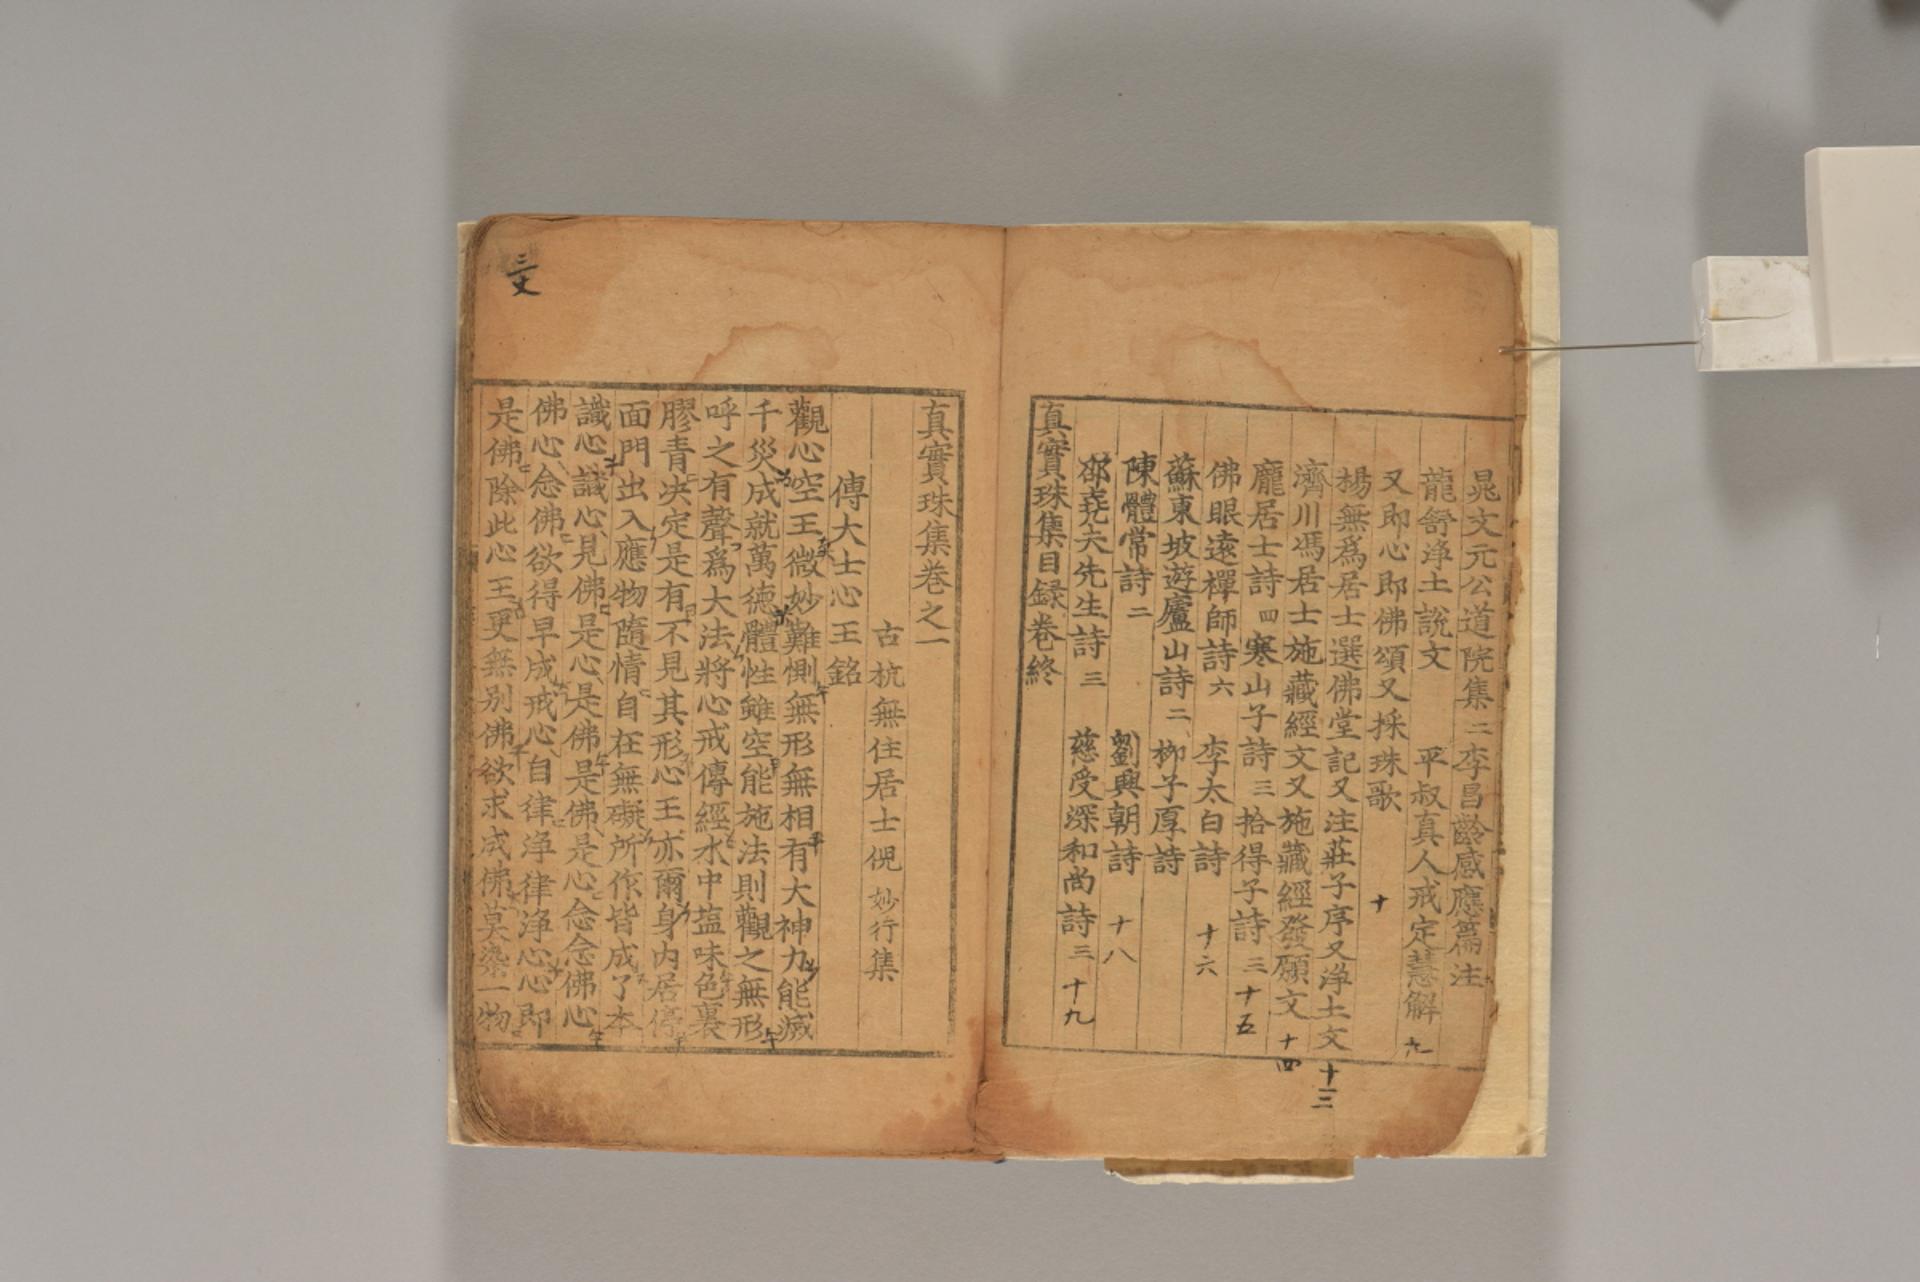 晁文元公道院集二 李昌齡感應篇注
龍舒淨土說文 平叔真人戒定慧解 九
又即心即佛頌又採珠歌 十
楊無爲居士選佛堂記又注莊子序又淨土文 十三
濟川馮居士施藏經文又施藏經發願文 十四
龐居士詩四 寒山子詩三 拾得子詩三 十五
佛眼遠禪師詩六 李太白詩 十六
蘇東坡遊廬山詩二 柳子厚詩
陳體常詩二 劉興朝詩 十八
邵堯夫先生詩三 慈受深和尚詩三 十九
真實珠集目録卷終
真實珠集卷之一
古杭無住居士倪妙行集
傅大士心王銘
觀心空王微妙難惻無形無相有大神力能滅
千災成就萬德體性雖空能施法則觀之無形
呼之有聲爲大法將心戒傳經水中塩味色裏
膠青决定是有不見其形心王亦爾身内居停
面門出入應物隨情自在無礙所作皆成了本
識心識心見佛是心是佛是佛是心念念佛心
佛心念佛欲得早成戒心自律淨律淨心心即
是佛除此心王更無别佛欲求成佛莫染一物